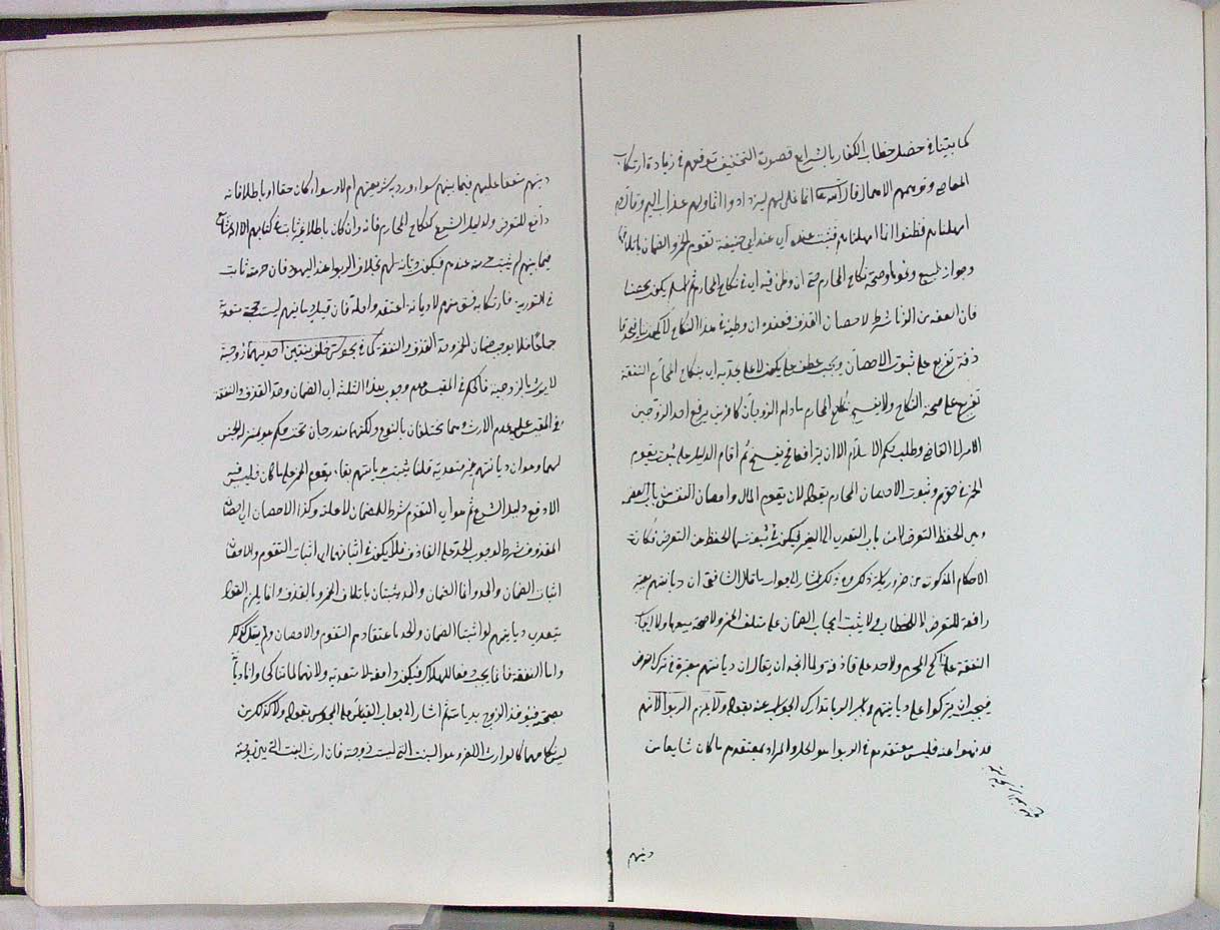 كما بينا في فصل خطاب الكفار بالشرايع فصورة التخفيف توقعهم في زيادة ارتكاب
المعاصي وتوهمهم الاهمال قال الله تعالى انما نملي لهم ليزدادوا اثما ولهم عذاب اليم
امهلناهم فظنوا انا اهملناهم فثبت عنده اي عند ابي حنيفة تقوم الخمر والضمان باتلافها
وجواز البيع ونحوها وصحة نكاح المحارم حتى ان وطئ فيه اي في نكاح المحارم ثم اسلم يكون محصنا
فان العفة من الزنا شرط لاحصان القذف فعنده ان وطئه في هذا النكاح لا يكون زنا فيحد
قذفه تفريع على ثبوت الاحصان ويجب عطف على يكون لا على يحد به اي بنكاح المحارم النفقة
تفريع على صحة النكاح ولا يفسخ نكاح المحارم ما دام الزوجان كافرين يرفع احد الزوجين
الامر الى القاضي وطلب حكم الاسلام الا ان يترافعا فح يفسخ ثم اقام الدليل على ثبوت تقوم
الخمر في حقهم وثبوت الاحصان المحارم بقوله لان تقوم المال واحصان النفس من باب العصمة
وهي الحفظ التعرض لا من باب التعدي الى الغير فيكون في ثبوتهما الحفظ عن التعرض فكانت
الاحكام المذكورة من ضرورياته ذكره ثم اشار الى جواب ما قال الشافعي ان ديانتهم معتبرة
رافعة للتعرض لا للخطاب ولا يثبت ايجاب الضمان على متلف الخمر ولا صحة بيعها ولا ايجاب
النفقة على ناكح المحرم ولا حد على قاذفه ولما اتجه ان يقال ان ديانتهم معتبرة في ترك التعرض
فيجب ان يتركوا على ديانتهم في باب الربا تدارك الجواب عنه بقوله ولا يلزم الربوا لانهم
قد نهوا عنه فليس معتقدهم في الربوا هو الحل والمراد بمعتقدهم ما كان شايعا من
دينهم
دينهم متفقا عليهم فيما بينهم سواء ورد به شريعتهم ام لا وسواء كان حقا او باطلا فانه
دافع للتعرض ولدليل الشرع كنكاح المحارم فانه وان كان باطلا غير ثابت في كتابهم الا انه شاع
فيما بينهم لم يثبت حرمته عندهم فيكون ديانة لهم بخلاف الربوا عند اليهود فان حرمته ثابت
في التورية فارتكابه فسق منهم لا ديانة اعتقدوا حله فان قيل ديانتهم ليست حجة متعدية
اجماعا فلا يوجب ضمان الخمر وحد القذف والنفقة كما في مجوسي خلف بنتين احديهما زوجته
لا يورث بالزوجية فالحكم في المقيس هو وجوب هذه الثلثة اي الضمان وحد القذف والنفقة
وفي المقيس عليه عدم الارث وهما مختلفان بالنوع ولكنهما مندرجان تحت حكم هو بمنزلة الجنس
لهما وهو ان ديانتهم غير متعدية قلنا يثبت بديانتهم بقاء تقوم الخمر على ما كان فليس فيه
الا دفع دليل الشرع ثم هو اي التقوم شرط للضمان لا علته وكذا الاحصان اي احصان
المقذوف شرط لوجوب الحد على القاذف فلا يكون في اثباتهما اي اثبات التقوم والاحصان
اثبات الضمان والحد وانما الضمان والحد يثبتان باتلاف الخمر وبالقذف وانما يلزم القول
بتعدي ديانتهم لو اثبتنا الضمان والحد باعتقادهم التقوم والاحصان ولم نقل كذلك
واما النفقة فانما يجب دفعا للهلاك فيكون دافعة لا متعدية ولانهما لما تناكحا وانا دينا
بصحته فيؤخذ الزوج بديانته ثم اشار الى جواب القياس على المجوسي بقوله ولا كذلك من
ليس نكاحهما كالوارث الاخر وهو البنت التي ليست زوجته فان ارث البنت التي هي زوجته